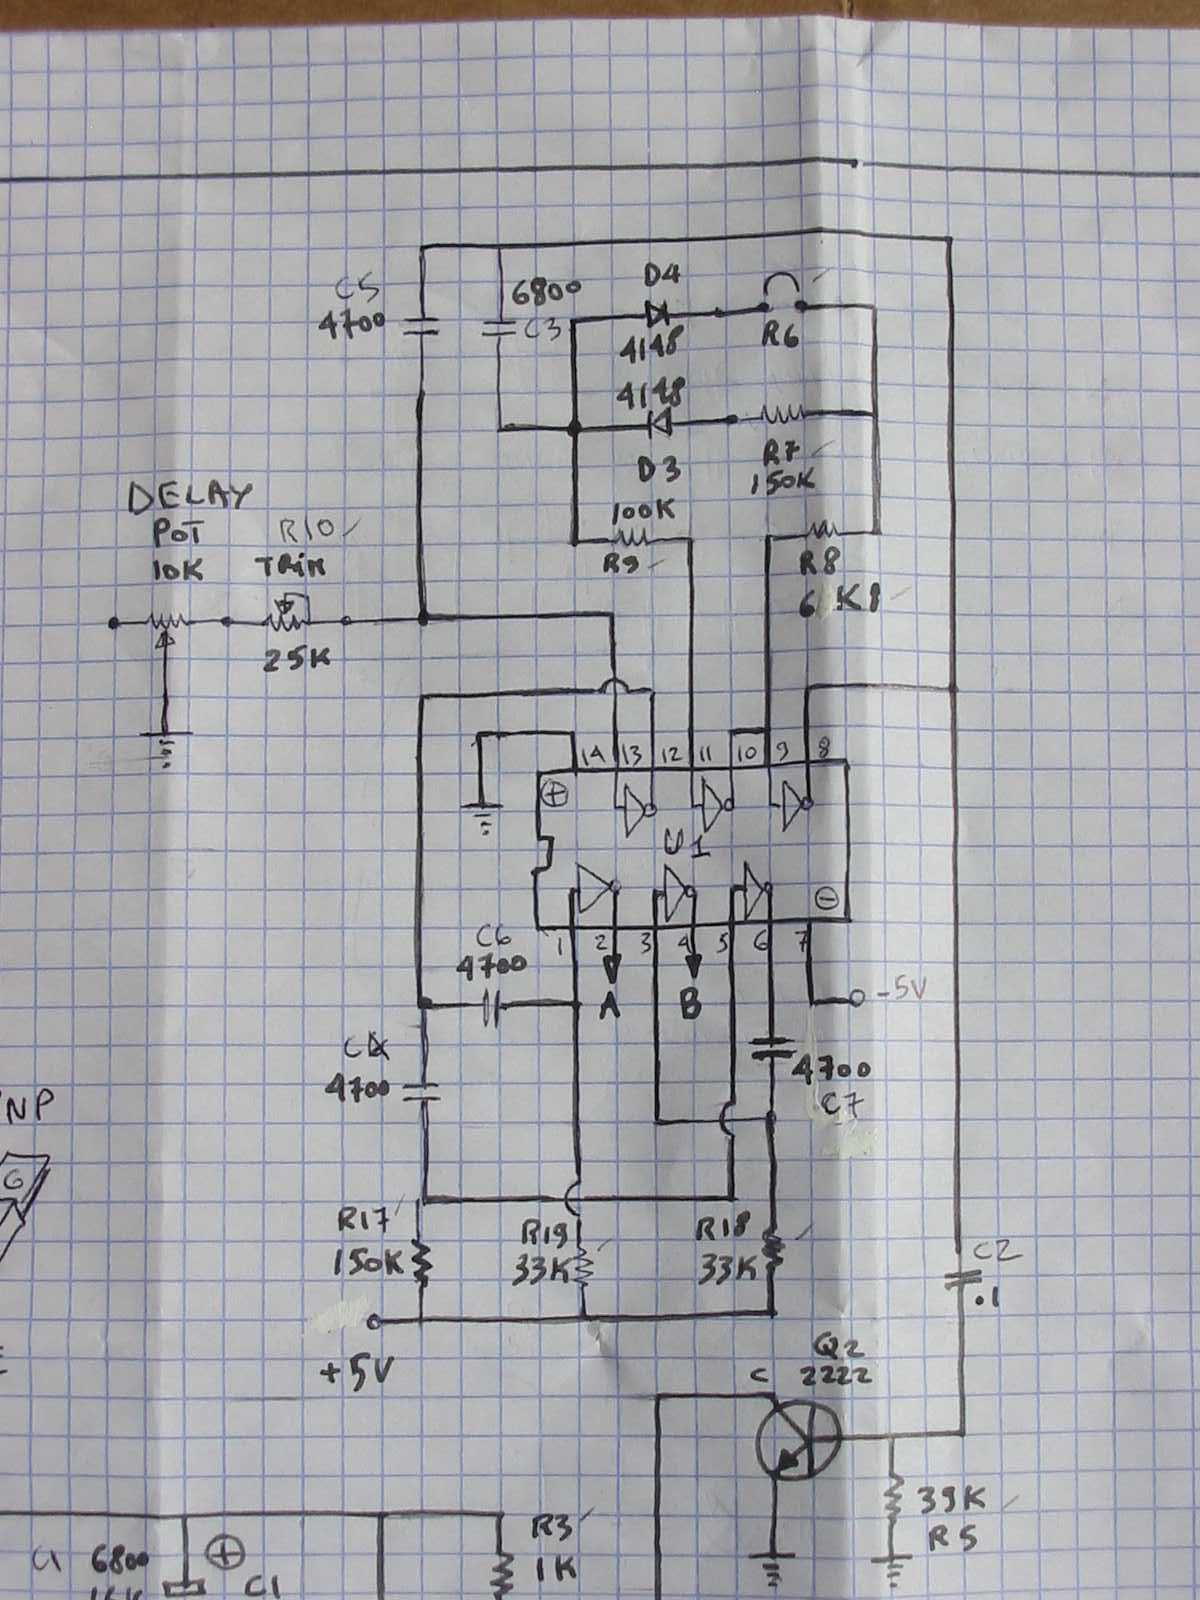 C5
4700
6800
C3
D4
4148
R6
4148
D3
R7
150K
100K
R9
R8
6K8
DELAY
POT
10K
R10
TRIM
25K
14 13 12 11 10 9 8
+
U1
-
1 2 3 4 5 6 7
A
B
-5V
C6
4700
C4
4700
4700
C7
PNP
G
R17
150K
R19
33K
R18
33K
C2
.1
+5V
Q2
2222
C
39K
R5
R3
1K
C1
6800
+
C1